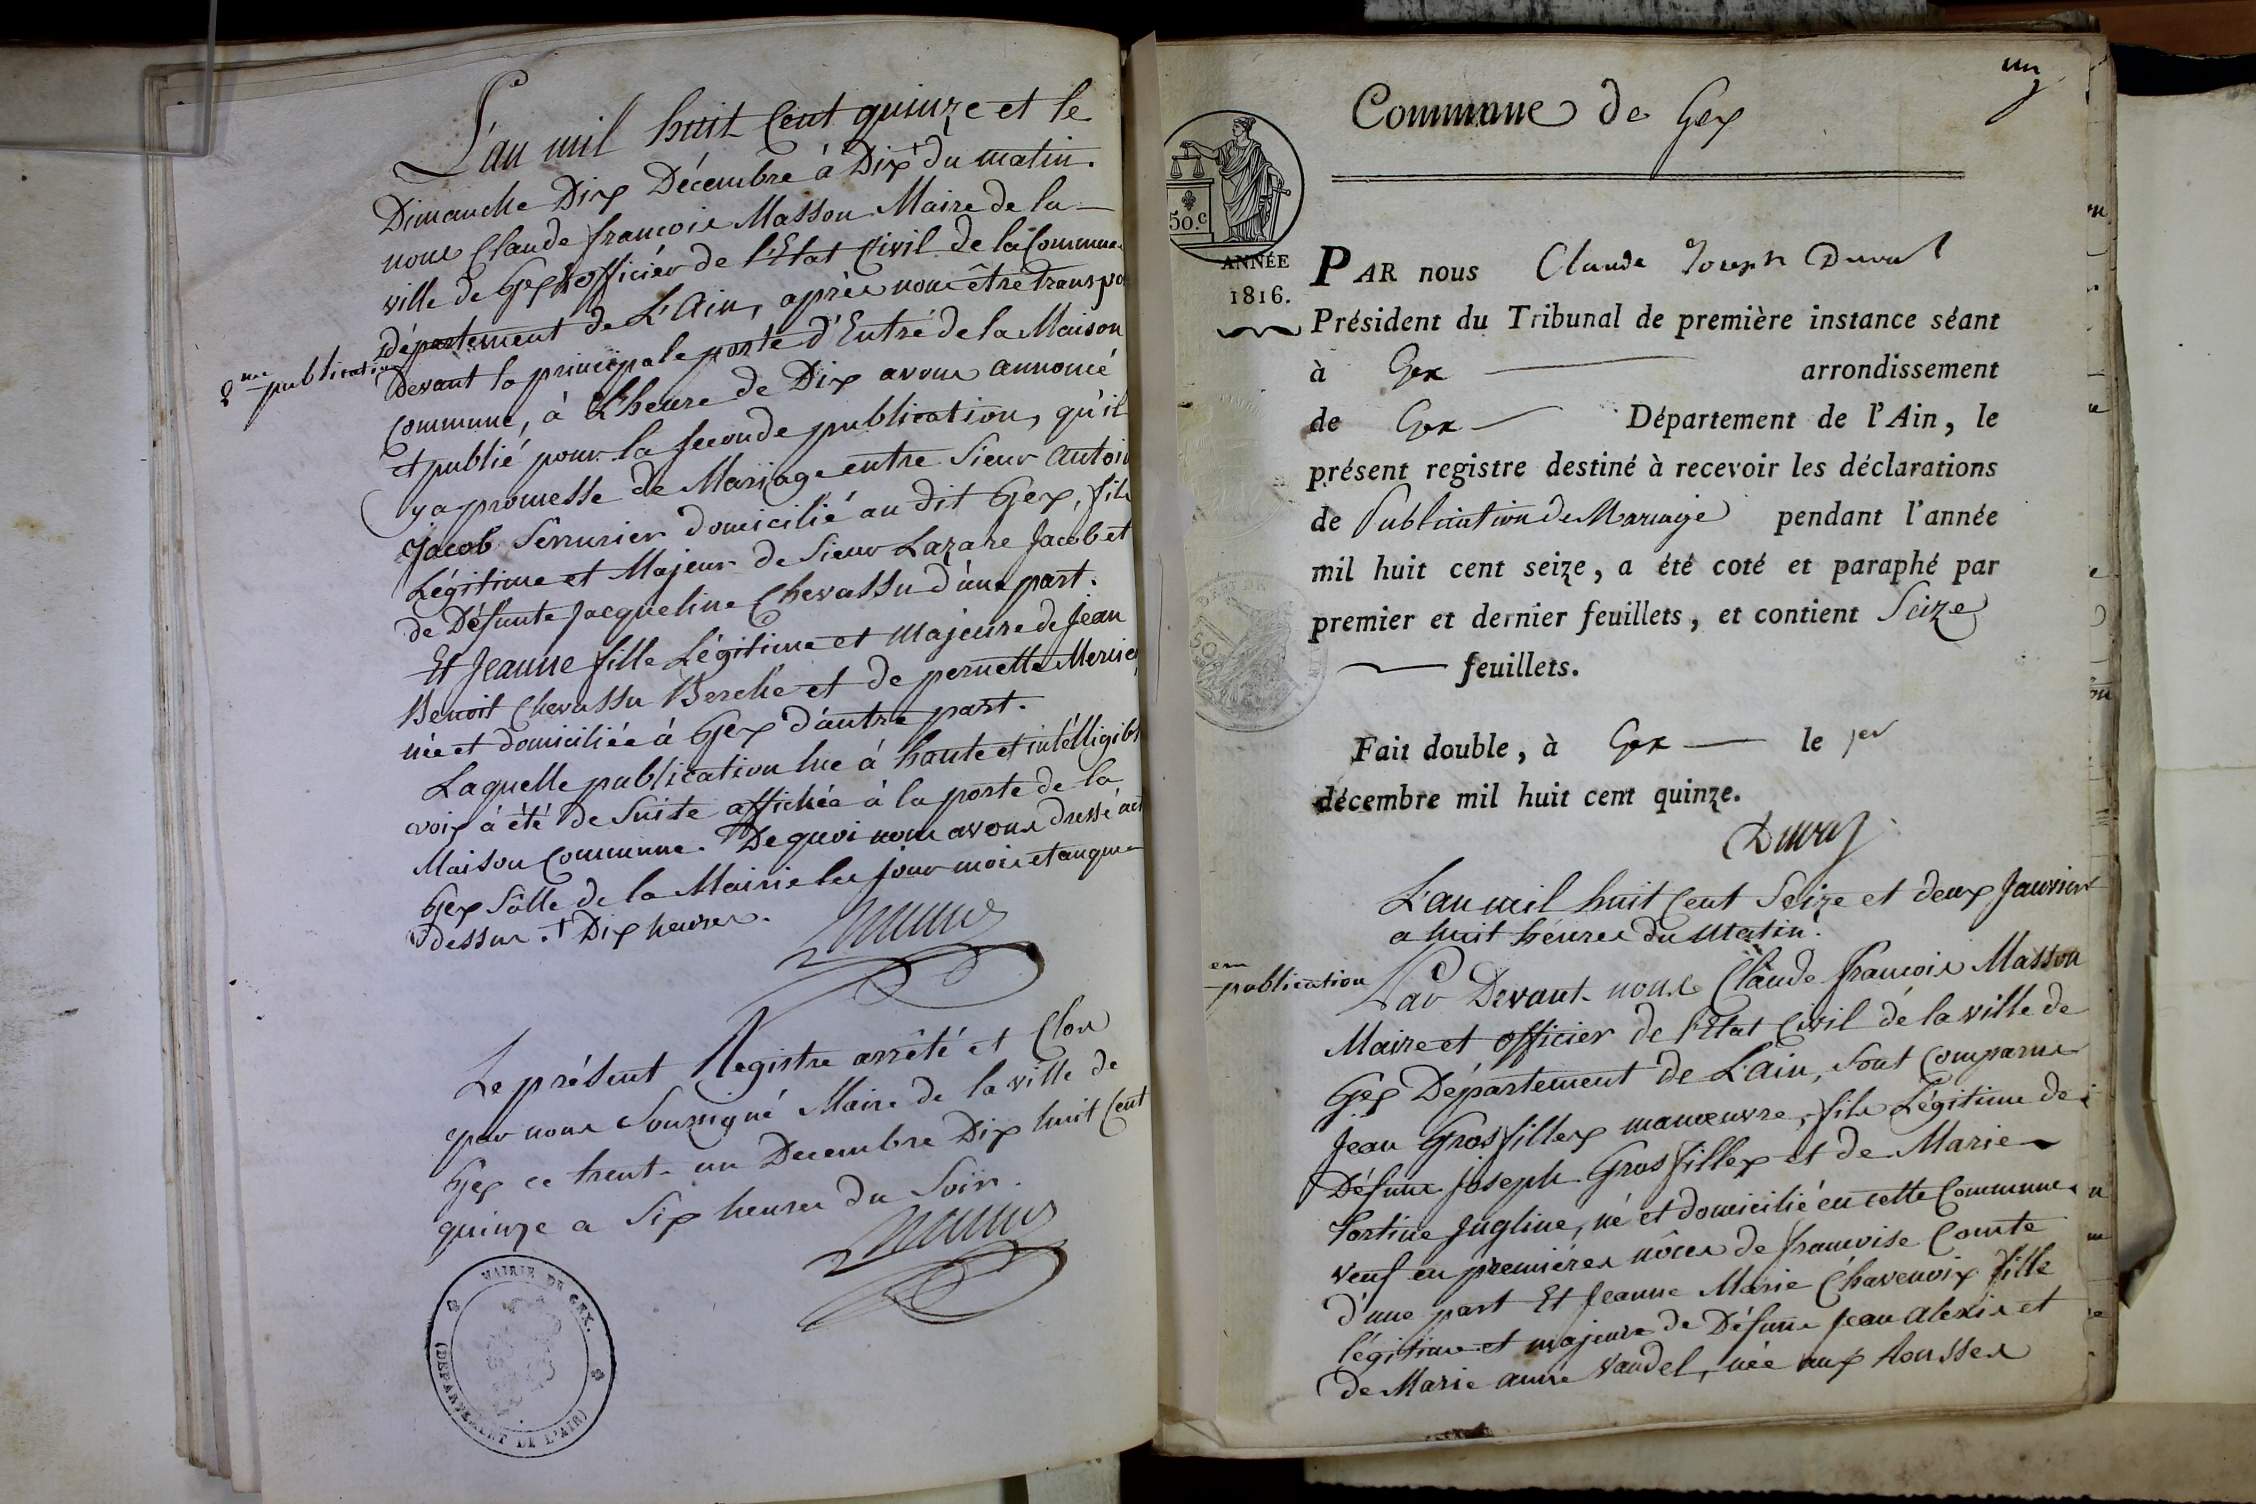 L'an mil huit Cent quinze et le
Dimanche Dix Décembre à Dix + du matin.
nous Claude françois Masson Maire de la
ville de Gex officier de l'Etat Civil de la Commune
département de L'Ain, après nous être transpo
2me publication
devant la principale porte d'Entré de la Maison
Commune, à L'heure de Dix avons annoncé
et publié pour la seconde publication, qu'il
y a promesse de Mariage entre Sieur Antoi
Jacob Serrurier domicilié au dit Gex, fils
Légitime et Majeur de Sieur Lazare Jacob et
de Défunte Jacqueline Chevassu d'une part.
Et Jeanne fille Légitime et Majeure de Jean
Benoit Chevassu Berche et de pernette Mercie
née et domiciliée à Gex d'autre part.
Laquelle publication lue à haute et intélligibl
voix à été de suite affichée à la porte de la
Maison Commune. De quoi nous avons dressé act
Gex Sâlle de la Mairie les jour mois et an que
dessus. + Dix heures.
Le présent Registre arrêté et Clos
par nous Soussigné Maire de la ville de
Gex ce trent-un Decembre Dix huit Cent
quinze a Six heures du Soir.
MAIRIE DE GEX.
(DÉPARTEMENT DE L'AIN)
un
Commune de Gex
50.c
ANNÉE
1816.
PAR nous Claude Joseph Duval
Président du Tribunal de première instance séant
à Gex arrondissement
de Gex Département de l'Ain, le
présent registre destiné à recevoir les déclarations
de Publication de Mariage pendant l'année
mil huit cent seize, a été coté et paraphé par
premier et dernier feuillets, et contient Seize
feuillets.
Fait double, à Gex le 1er
décembre mil huit cent quinze.
Duval
L'an mil huit Cent Seize et deux Janvier
a huit héures du Matin.
em publication
Par Devant nous Claude françois Masson
Maire et officier de l'Etat Civil de la ville de
Gex Département de L'Ain, sont comparus
Jean Grosfillex manœuvre, fils Légitime de
Défunt Joseph Grosfillex et de Marie
Jugline, né et domicilié en cette Commune
veuf en premières nôces de françoise Comte
d'une part Et Jeanne Marie Chavenoix fille
légitime et majeure de Défunt Jean Alexis et
de Marie anne Vandel, née aux Rousses